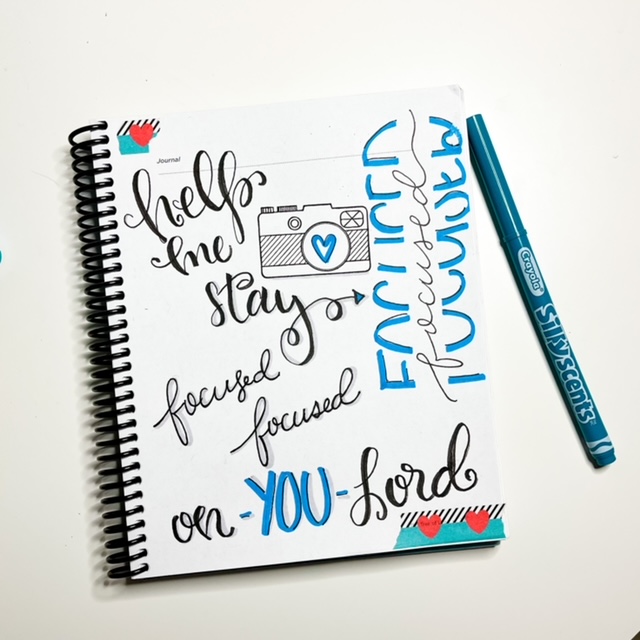 Journal
help
me
stay
FOCUSED
focused
focused
focused
on -YOU- Lord
Crayola
Silly scents™